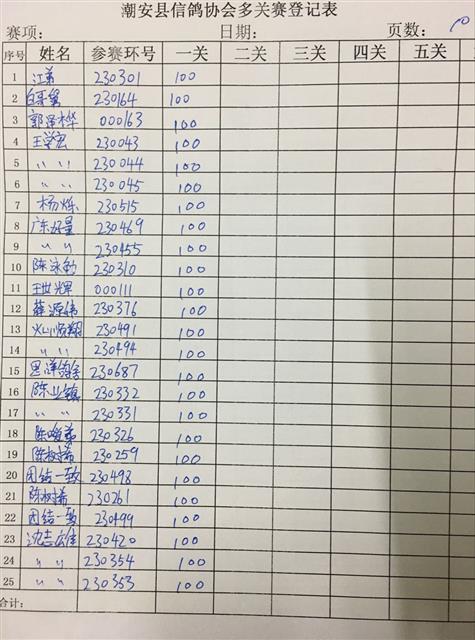 潮安县信鸽协会多关赛登记表
赛项: 日期: 页数: 10
序号 姓名 参赛环号 一关 二关 三关 四关 五关
1 江弟 230301 100
2 白哥第 230164 100
3 郭泽桦 000163 100
4 王学宏 230043 100
5 〃 〃 230044 100
6 〃 〃 230045 100
7 杨烁 230515 100
8 广东好量 230469 100
9 〃 〃 230455 100
10 陈泳勤 230310 100
11 王世辉 000111 100
12 薛源伟 230376 100
13 火山顺翔 230491 100
14 〃 〃 230494 100
15 思洋鸽舍 230687 100
16 陈业镇 230332 100
17 〃 〃 230331 100
18 陈唯弟 230326 100
19 陈树希 230259 100
20 团结一致 230498 100
21 陈树希 230261 100
22 团结一致 230499 100
23 沈志宏佳 230420 100
24 〃 〃 230354 100
25 〃 〃 230353 100
合计: